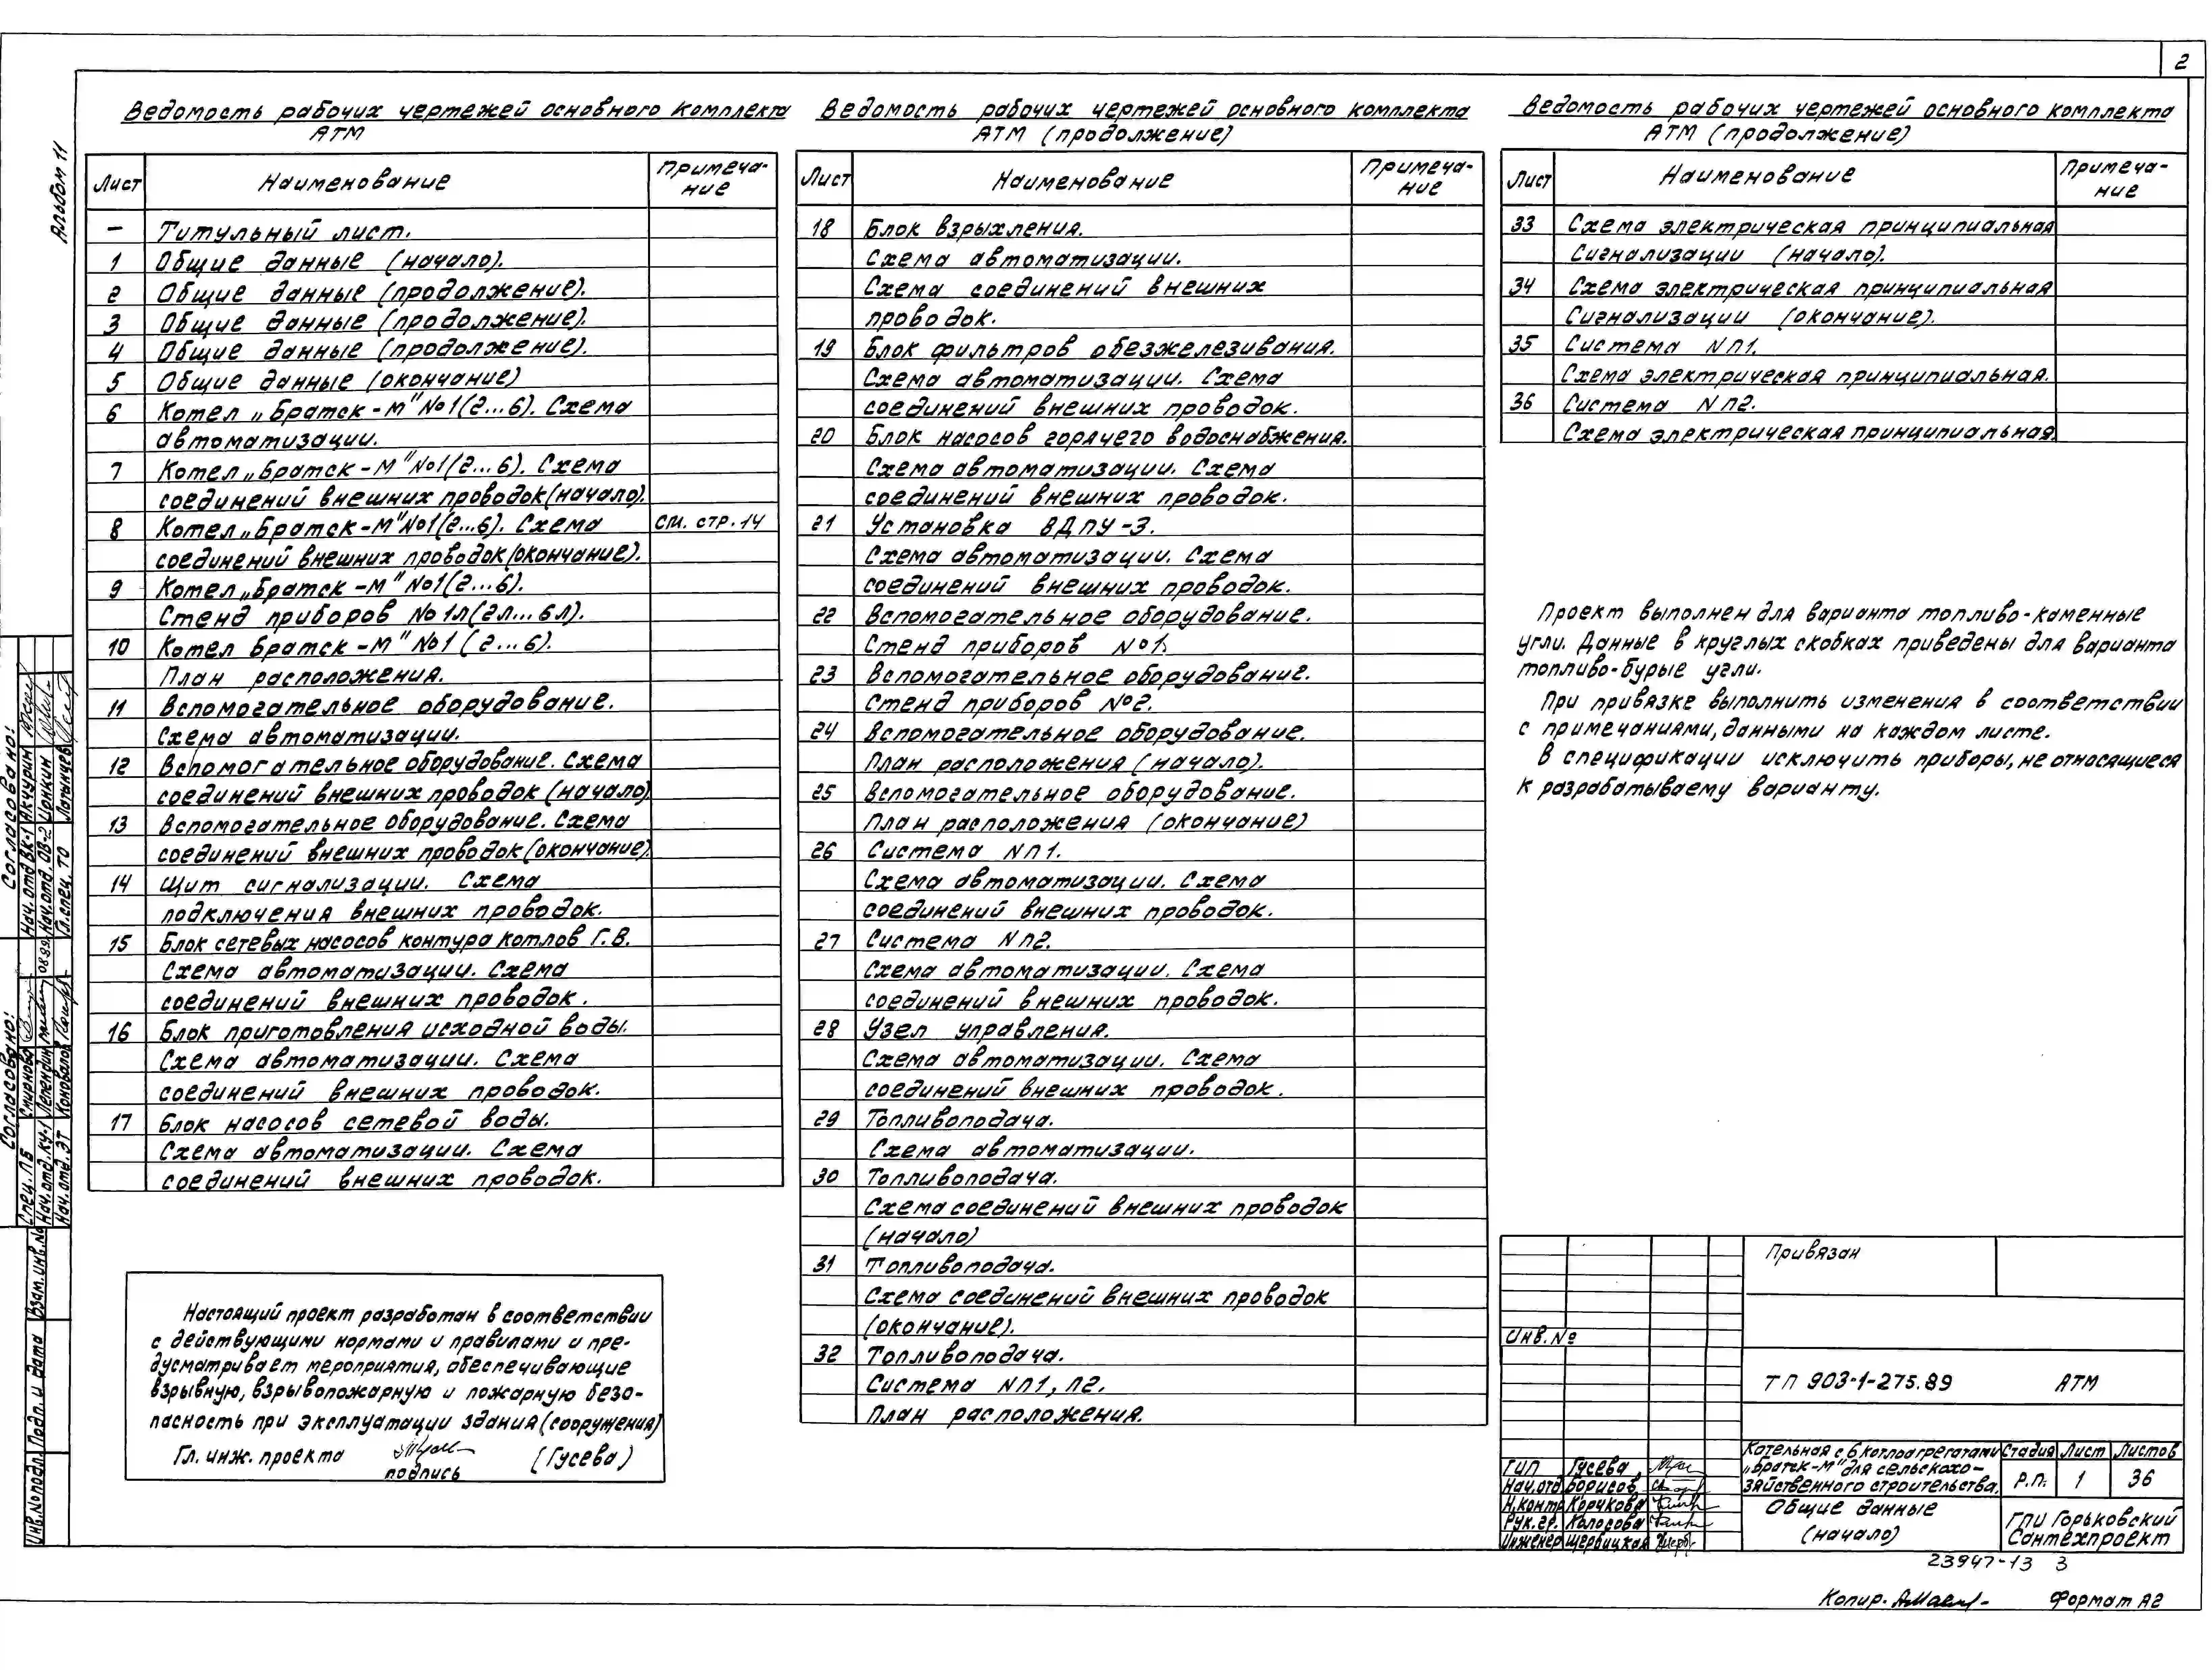 2
Альбом 11
Ведомость рабочих чертежей основного комплекта
АТМ
Лист Наименование Примеча-
ние
— Титульный лист.
1 Общие данные (начало).
2 Общие данные (продолжение).
3 Общие данные (продолжение).
4 Общие данные (продолжение).
5 Общие данные (окончание)
6 Котел „Братск-М" №1(2...6). Схема
автоматизации.
7 Котел „Братск-М" №1(2...6). Схема
соединений внешних проводок (начало).
8 Котел „Братск-М" №1(2...6). Схема см. стр. 14
соединений внешних проводок (окончание).
9 Котел „Братск-М" №1(2...6).
Стенд приборов №1л(2л...6л).
10 Котел Братск-М" №1 (2...6).
План расположения.
11 Вспомогательное оборудование.
Схема автоматизации.
12 Вспомогательное оборудование. Схема
соединений внешних проводок (начало)
13 Вспомогательное оборудование. Схема
соединений внешних проводок (окончание).
14 Щит сигнализации. Схема
подключения внешних проводок.
15 Блок сетевых насосов контура котлов Г.В.
Схема автоматизации. Схема
соединений внешних проводок.
16 Блок приготовления исходной воды.
Схема автоматизации. Схема
соединений внешних проводок.
17 Блок насосов сетевой воды.
Схема автоматизации. Схема
соединений внешних проводок.
Ведомость рабочих чертежей основного комплекта
АТМ (продолжение)
Лист Наименование Примеча-
ние
18 Блок взрыхления.
Схема автоматизации.
Схема соединений внешних
проводок.
19 Блок фильтров обезжелезивания.
Схема автоматизации. Схема
соединений внешних проводок.
20 Блок насосов горячего водоснабжения.
Схема автоматизации. Схема
соединений внешних проводок.
21 Установка ВДПУ-3.
Схема автоматизации. Схема
соединений внешних проводок.
22 Вспомогательное оборудование.
Стенд приборов №1.
23 Вспомогательное оборудование.
Стенд приборов №2.
24 Вспомогательное оборудование.
План расположения (начало).
25 Вспомогательное оборудование.
План расположения (окончание)
26 Система NП1.
Схема автоматизации. Схема
соединений внешних проводок.
27 Система NП2.
Схема автоматизации. Схема
соединений внешних проводок.
28 Узел управления.
Схема автоматизации. Схема
соединений внешних проводок.
29 Топливоподача.
Схема автоматизации.
30 Топливоподача.
Схема соединений внешних проводок
(начало)
31 Топливоподача.
Схема соединений внешних проводок
(окончание).
32 Топливоподача.
Система NП1, П2.
План расположения.
Ведомость рабочих чертежей основного комплекта
АТМ (продолжение)
Лист Наименование Примеча-
ние
33 Схема электрическая принципиальная
Сигнализации (начало).
34 Схема электрическая принципиальная
Сигнализации (окончание).
35 Система NП1.
Схема электрическая принципиальная.
36 Система NП2.
Схема электрическая принципиальная.
Проект выполнен для варианта топливо-каменные
угли. Данные в круглых скобках приведены для варианта
топливо-бурые угли.
При привязке выполнить изменения в соответствии
с примечаниями, данными на каждом листе.
В спецификации исключить приборы, не относящиеся
к разрабатываемому варианту.
Настоящий проект разработан в соответствии
с действующими нормами и правилами и пре-
дусматривает мероприятия, обеспечивающие
взрывную, взрывопожарную и пожарную безо-
пасность при эксплуатации здания (сооружения)
Гл. инж. проекта (Гусева)
подпись
Согласовано:
Нач. отд ВК-1 Акчурин
Нач. отд. ОВ-2 Цонкин
Гл. спец. ТО Латынцев
Согласовано:
Спец. ПБ Смирнова
Нач. отд. КУ-1 Лепендин 08.89
Нач. отд. ЭТ Коновалов
Взам. инв. №
Подп. и дата
Инв. № подл.
Привязан
Инв. №
ТП 903-1-275.89 АТМ
ГИП Гусева
Нач.отд Борисов
Н.контр Корчкова
Рук.гр. Колосова
Инженер Щервицкая
Котельная с 6 котлоагрегатами
„Братск-М" для сельскохо-
зяйственного строительства.
Стадия Лист Листов
Р.П. 1 36
Общие данные
(начало)
ГПИ Горьковский
Сантехпроект
23947-13 3
Копир. Формат А2